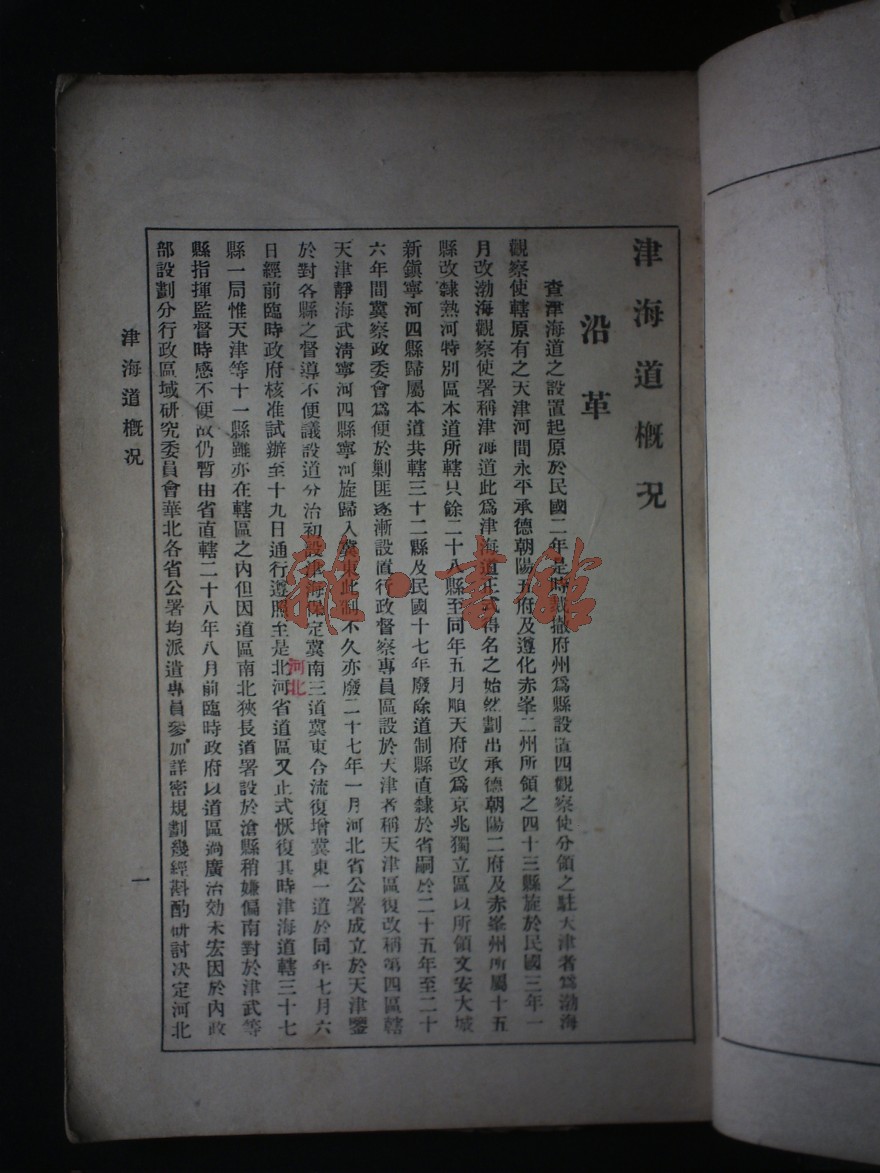 津海道概況
沿革
查津海道之設置起原於民國二年是時裁撤府州爲縣設置四觀察使分領之駐天津者爲渤海
觀察使轄原有之天津河間永平承德朝陽五府及遵化赤峯二州所領之四十三縣旋於民國三年一
月改渤海觀察使署稱津海道此爲津海道正式得名之始然劃出承德朝陽二府及赤峯州所屬十五
縣改隸熱河特別區本道所轄只餘二十八縣至同年五月順天府改爲京兆獨立區以所領文安大城
新鎭寧河四縣歸屬本道共轄三十二縣及民國十七年廢除道制縣直隸於省嗣於二十五年至二十
六年間冀察政委會爲便於剿匪逐漸設置行政督察專員區設於天津者稱天津區復改稱第四區轄
天津靜海武淸寧河四縣寧河旋歸入冀東此制不久亦廢二十七年一月河北省公署成立於天津鑒
於對各縣之督導不便議設道分治初設津海保定冀南三道冀東合流復增冀東一道於同年七月六
日經前臨時政府核准試辦至十九日通行遵照至是北河省道區又正式恢復其時津海道轄三十七
河北
縣一局惟天津等十一縣雖亦在轄區之內但因道區南北狹長道署設於滄縣稍嫌偏南對於津武等
縣指揮監督時感不便故仍暫由省直轄二十八年八月前臨時政府以道區過廣治効未宏因於內政
部設劃分行政區域研究委員會華北各省公署均派遣專員參加詳密規劃幾經斟酌研討決定河北
津海道概況
一
雜·書館